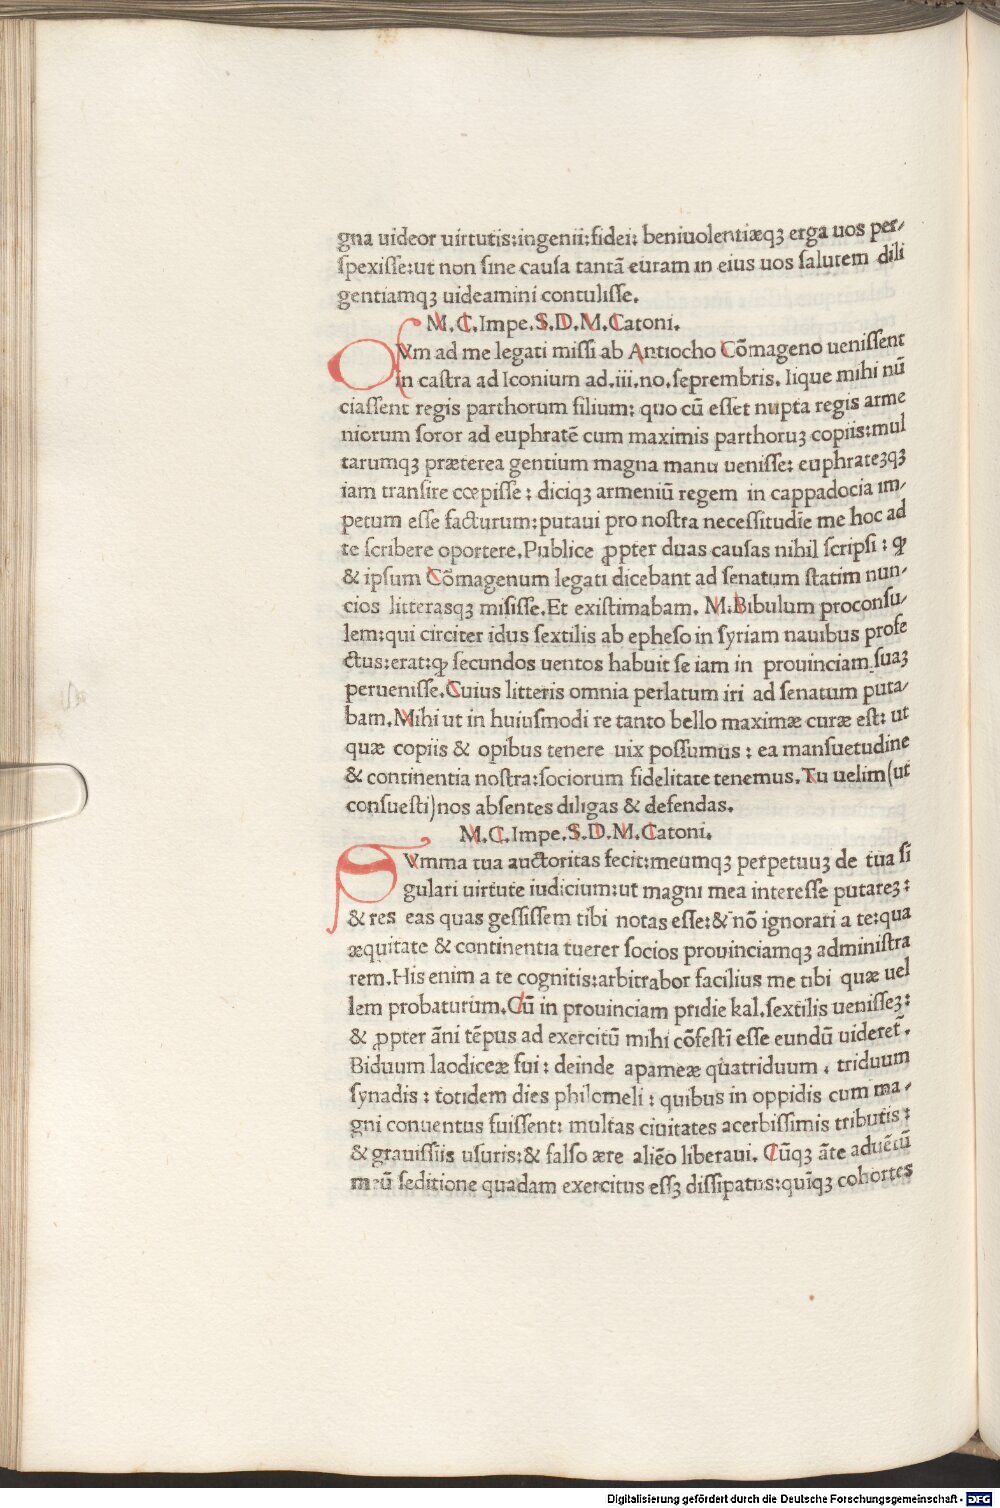 gna uideor uirtutis:ingenii:fidei: beniuolentiæqꝫ erga uos per-
ſpexiſſe:ut non ſine cauſa tantã curam in eius uos ſalutem dili
gentiamqꝫ uideamini contuliſſe.
M.C.Impe.S.D.M.Catoni.
QVm ad me legati miſſi ab Antiocho Cõmageno ueniſſent
in caſtra ad Iconium ad.iii.no.ſeprembris. Iique mihi nũ
ciaſſent regis parthorum filium: quo cũ eſſet nupta regis arme
niorum ſoror ad euphratẽ cum maximis parthoruꝫ copiis:mul
tarumqꝫ præterea gentium magna manu ueniſſe: euphrateꝫqꝫ
iam tranſire cœpiſſe: diciqꝫ armeniũ regem in cappadocia im-
petum eſſe facturum:putaui pro noſtra neceſſitudĩe me hoc ad
te ſcribere oportere.Publice ꝓpter duas cauſas nihil ſcripſi: ꝙ
& ipſum Cõmagenum legati dicebant ad ſenatum ſtatim nun-
cios litterasqꝫ miſiſſe.Et exiſtimabam. M.Bibulum proconſu-
lem:qui circiter idus ſextilis ab epheſo in ſyriam nauibus profe
ctus:erat:ꝙ ſecundos uentos habuit ſe iam in prouinciam ſuaꝫ
perueniſſe.Cuius litteris omnia perlatum iri ad ſenatum puta-
bam.Mihi ut in huiuſmodi re tanto bello maximæ curæ eſt: ut
quæ copiis & opibus tenere uix poſſumus: ea manſuetudine
& continentia noſtra:ſociorum fidelitate tenemus.Tu uelim(ut
conſueſti)nos abſentes diligas & defendas.
M.C.Impe.S.D.M.Catoni.
SVmma tua auctoritas fecit:meumqꝫ perpetuuꝫ de tua ſĩ
gulari uirtute iudicium:ut magni mea intereſſe putareꝫ:
& res eas quas geſſiſſem tibi notas eſſe:& nõ ignorari a te:qua
æquitate & continentia tuerer ſocios prouinciamqꝫ adminiſtra
rem.His enim a te cognitis:arbitrabor facilius me tibi quæ uel
lem probaturum.Cũ in prouinciam pridie kal.ſextilis ueniſſeꝫ:
& ꝓpter ãni tẽpus ad exercitũ mihi cõfeſtĩ eſſe eundũ uideret̃.
Biduum laodiceæ fui: deinde apameæ quatriduum. triduum
ſynadis: totidem dies philomeli: quibus in oppidis cum ma-
gni conuentus fuiſſent: multas ciuitates acerbiſſimis tributis:
& grauiſſiis uſuris:& falſo ære aliẽo liberaui. Cũqꝫ ãte aduẽtũ
meũ ſeditione quadam exercitus eſſꝫ diſſipatus:quĩqꝫ cohortes
Digitalisierung gefördert durch die Deutsche Forschungsgemeinschaft - DFG